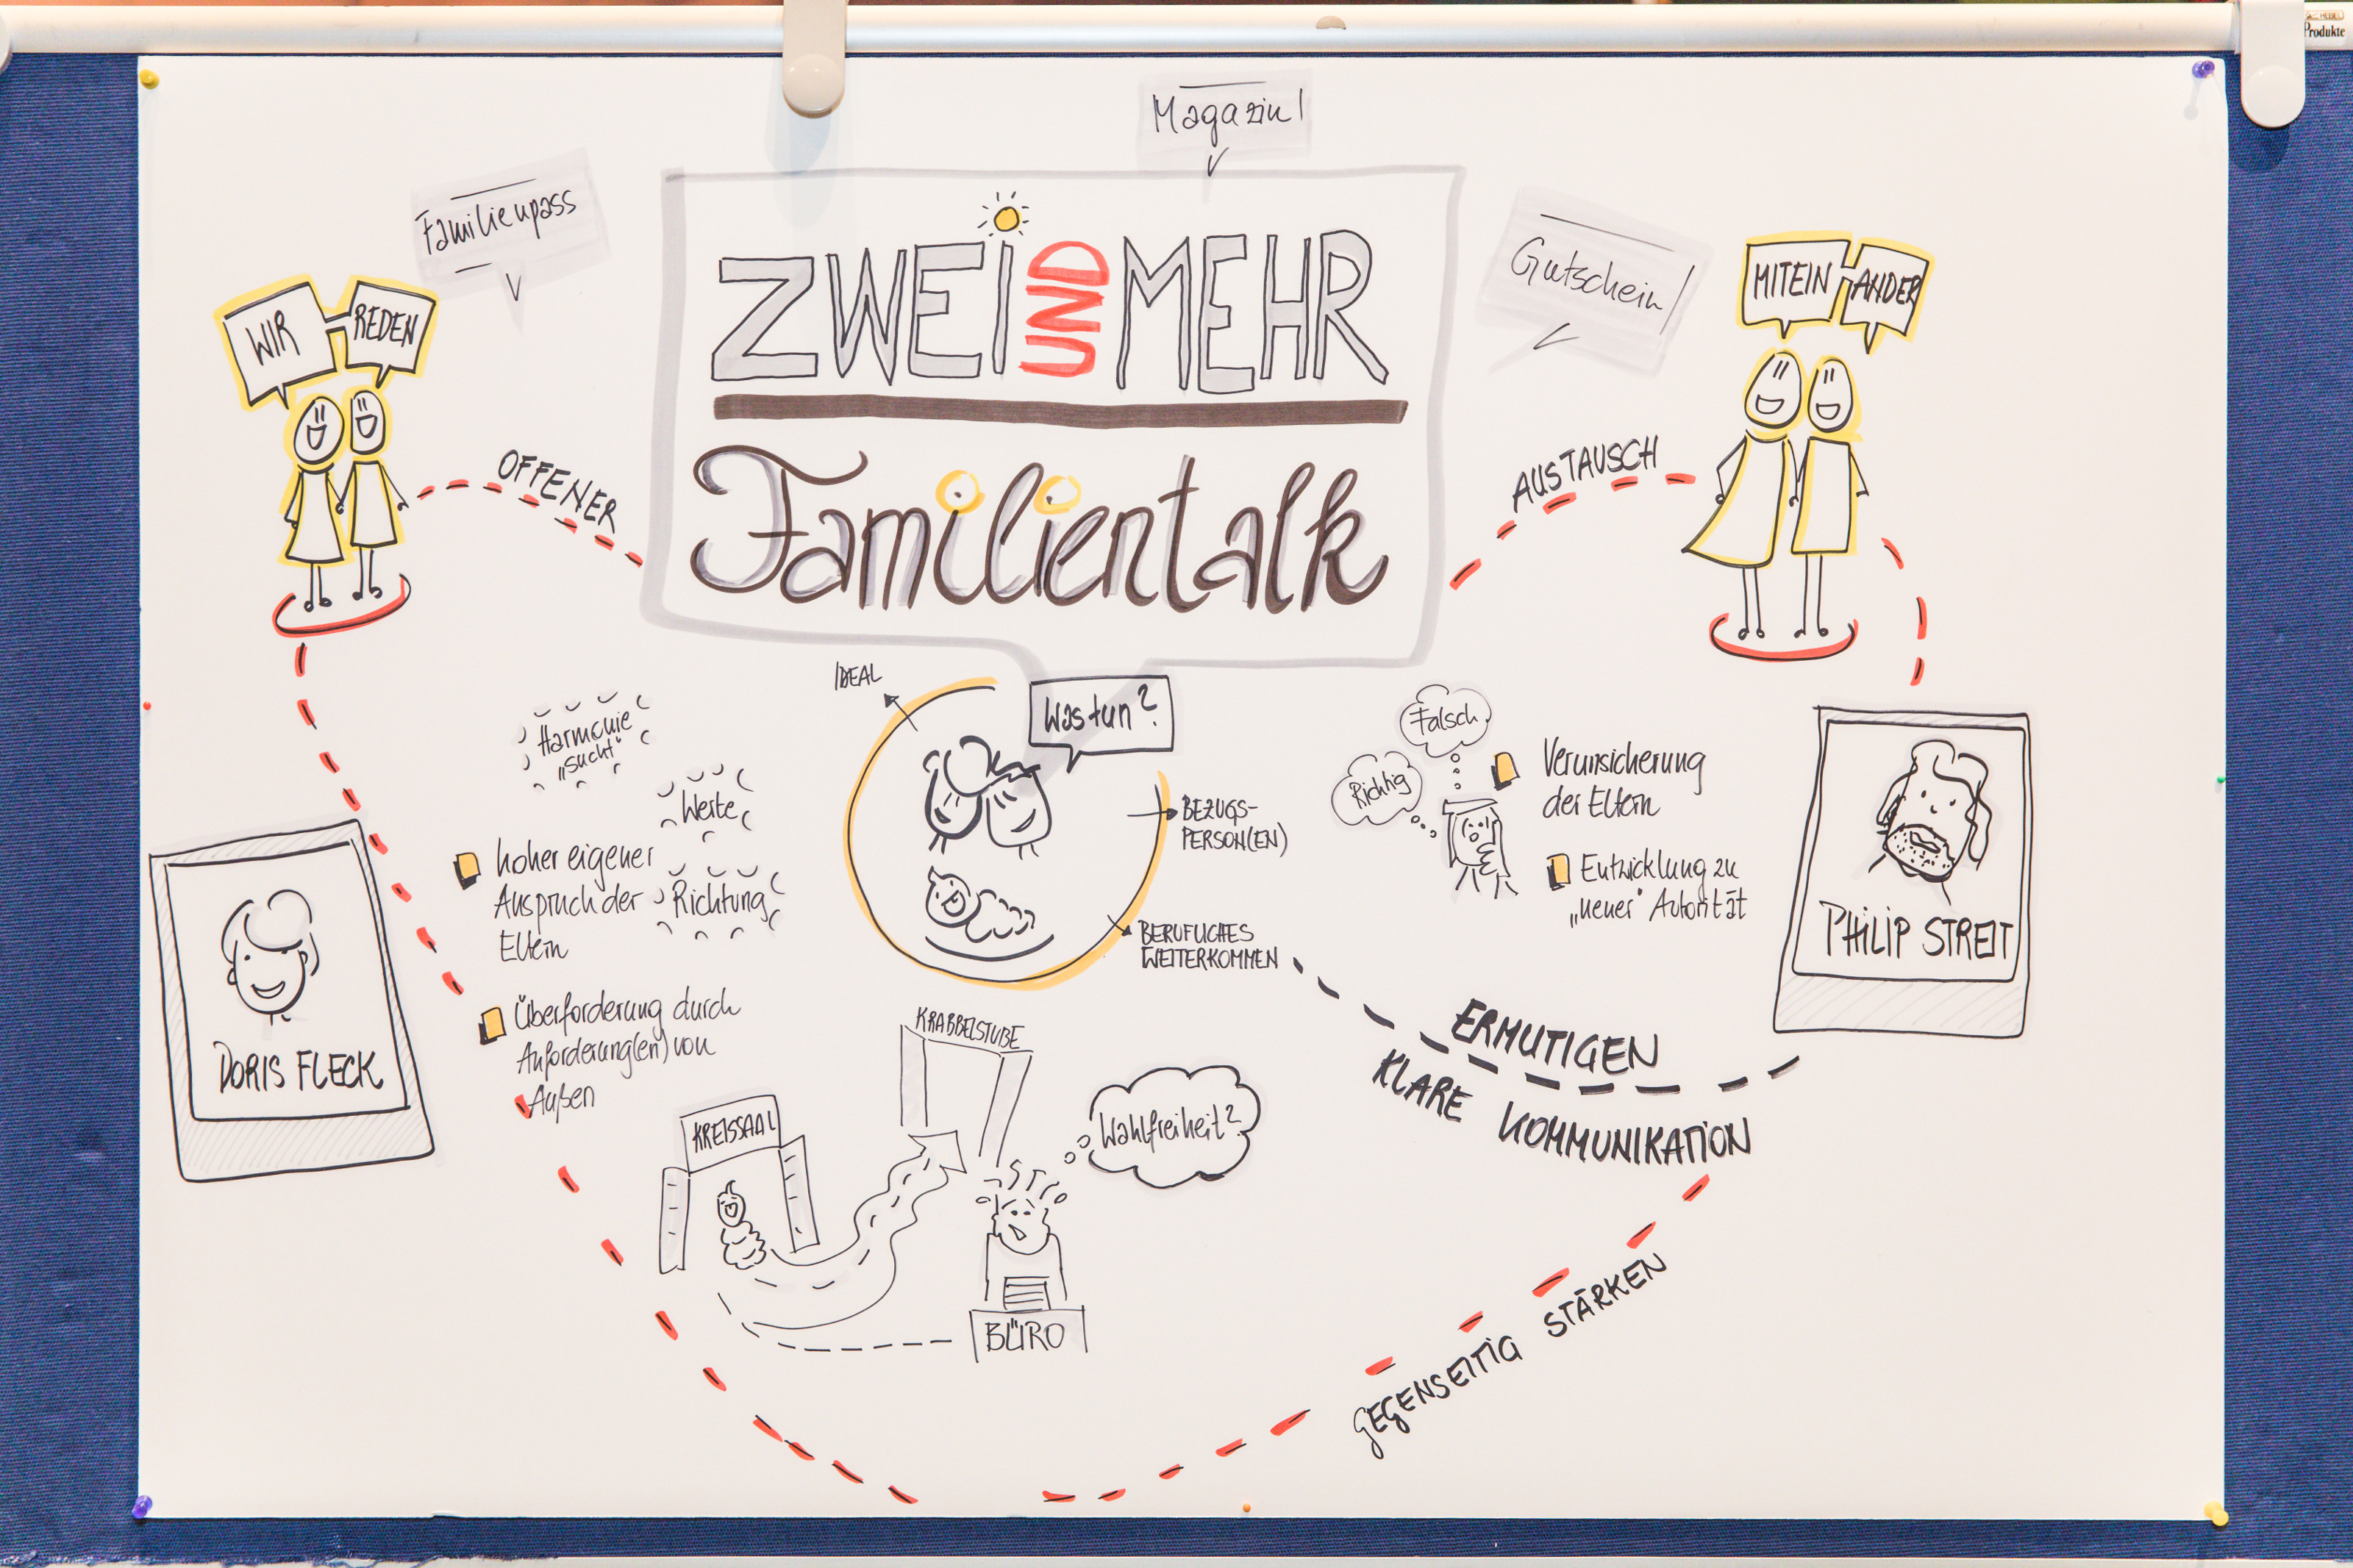 HEBEL
Produkte
Magazin!
Familienpass
ZWEI UND MEHR
Familientalk
Gutschein!
WIR REDEN
MITEIN ANDER
OFFENER
AUSTAUSCH
IDEAL
Was tun?
BEZUGS-
PERSON(EN)
BERUFLICHES
WEITERKOMMEN
Harmonie
„sucht“
Werte
Richtung
hoher eigener
Anspruch der
Eltern
Überforderung durch
Anforderung(en) von
Außen
DORIS FLECK
Falsch
Richtig
Verunsicherung
der Eltern
Entwicklung zu
„neuer“ Autorität
PHILIP STREIT
ERMUTIGEN
KLARE KOMMUNIKATION
KRABBELSTUBE
KREISSAAL
Wahlfreiheit?
BÜRO
GEGENSEITIG STÄRKEN